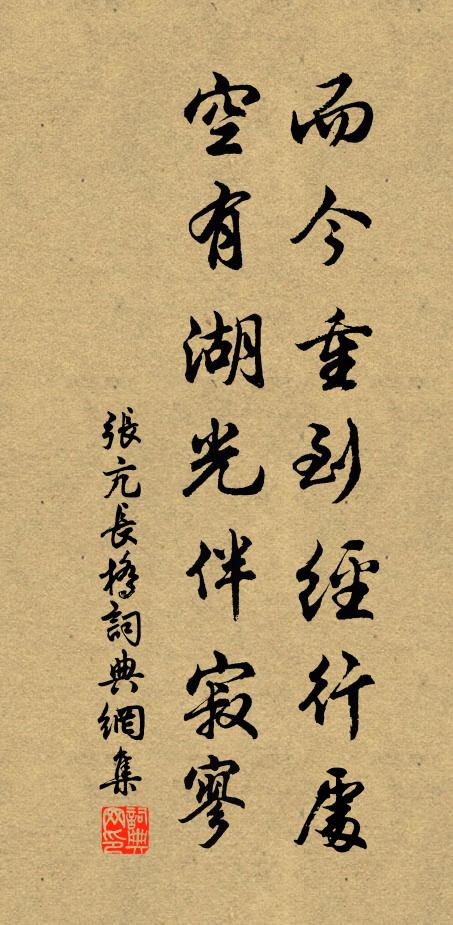 而今重到經行處
空有湖光伴寂寥
張亢長橋詞典網集
詞典網印